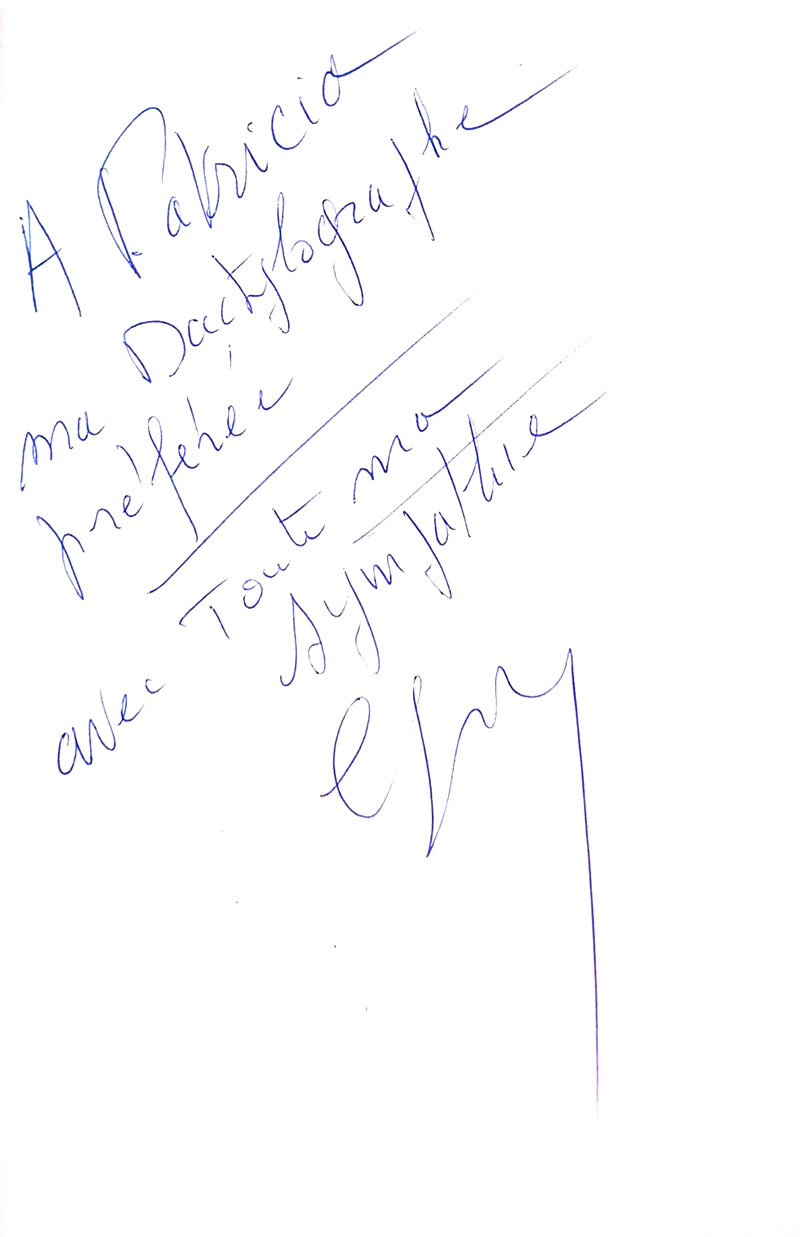 A Patricia
ma Dactylographe
préférée
avec Toute ma
sympathie